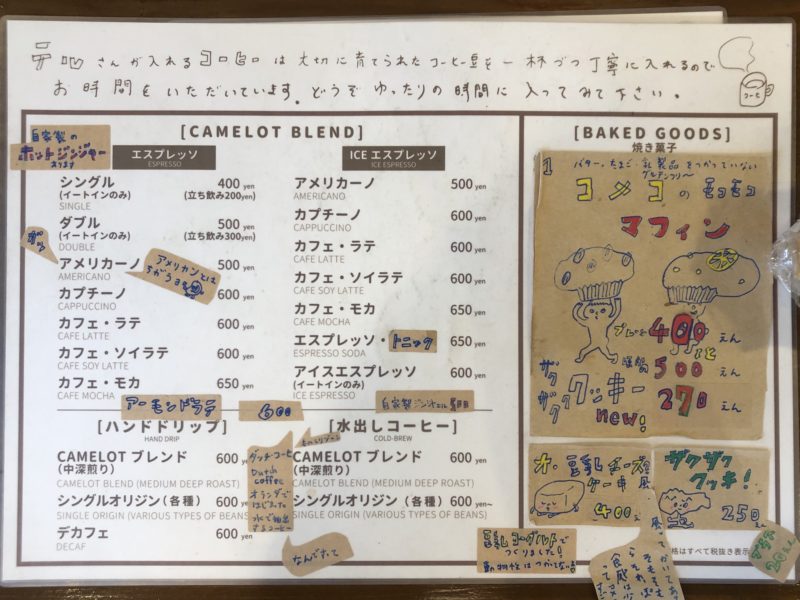 さんが入れるコーヒーは大切に育てられたコーヒー豆を一杯づつ丁寧に入れるので
お時間をいただいています。どうぞゆったりの時間に入ってみて下さい。
コーヒー
[CAMELOT BLEND]
自家製の
ホットジンジャー
あります
エスプレッソ
ESPRESSO
シングル 400 yen
(イートインのみ) (立ち飲み200yen)
SINGLE
ダブル 500 yen
(イートインのみ) (立ち飲み300yen)
DOUBLE
アメリカーノ 500 yen
AMERICANO
アメリカンとは
ちがうヨ
カプチーノ 600 yen
CAPPUCCINO
カフェ・ラテ 600 yen
CAFE LATTE
カフェ・ソイラテ 600 yen
CAFE SOY LATTE
カフェ・モカ 650 yen
CAFE MOCHA
アーモンドラテ 600
ICE エスプレッソ
ICE ESPRESSO
アメリカーノ 500 yen
AMERICANO
カプチーノ 600 yen
CAPPUCCINO
カフェ・ラテ 600 yen
CAFE LATTE
カフェ・ソイラテ 600 yen
CAFE SOY LATTE
カフェ・モカ 650 yen
CAFE MOCHA
エスプレッソ・トニック 650 yen
ESPRESSO SODA
アイスエスプレッソ 600 yen
(イートインのみ)
ICE ESPRESSO
自家製
[ハンドドリップ]
HAND DRIP
CAMELOT ブレンド 600
(中深煎り)
CAMELOT BLEND (MEDIUM DEEP ROAST)
シングルオリジン（各種） 600
SINGLE ORIGIN (VARIOUS TYPES OF BEANS)
デカフェ 600 yen
DECAF
ダッチコーヒー
Dutch
coffee
オランダで
はじまった
水で抽出
するコーヒー
なんですって
[水出しコーヒー]
COLD-BREW
CAMELOT ブレンド 600 yen
(中深煎り)
CAMELOT BLEND (MEDIUM DEEP ROAST)
シングルオリジン（各種） 600 yen~
SINGLE ORIGIN (VARIOUS TYPES OF BEANS)
豆乳ヨーグルトで
つくりました!
動物性はつかってないよ
[BAKED GOODS]
焼き菓子
バター・たまご・乳製品をつかっていない
グルテンフリー
コメコのモコモコ
マフィン
プレーン 400 えん
500 えん
ザクザク
クッキー 270 えん
new!
豆乳チーズ風
ケーキ
400 え
ザクザク
クッキー!
250
格はすべて税抜き表示